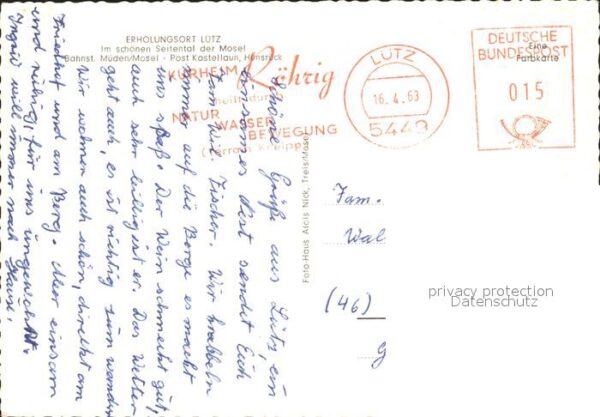 ERHOLUNGSORT LÜTZ
Im schönen Seitental der Mosel
Bahnst. Müden/Mosel - Post Kastellaun, Hunsrück
Eine
Farbkarte
KURHEIM Röhrig
heilt durch
NATUR
WASSER
BEWEGUNG
(Terrain Kneipp)
LÜTZ
16.4.63
5449
DEUTSCHE
BUNDESPOST
015
Foto-Haus Alois Nick, Treis/Mosel
Schöne Grüße aus Lütz, ein
sendet Euch
Fam. Fischer. Wir krabbeln
immer auf die Berge es macht
uns Spaß. Der Wein schmeckt gut,
auch sehr billig ist er. Das Wetter
geht auch, es ist richtig zum wandern
Wir wohnen auch schön, direkt am
Friedhof und am Berg. Aber einsam
und ruhig, für uns ungewohnt.
Ingrid will immer nach Haus.
Fam.
Wal
(46)
G
privacy protection
Datenschutz